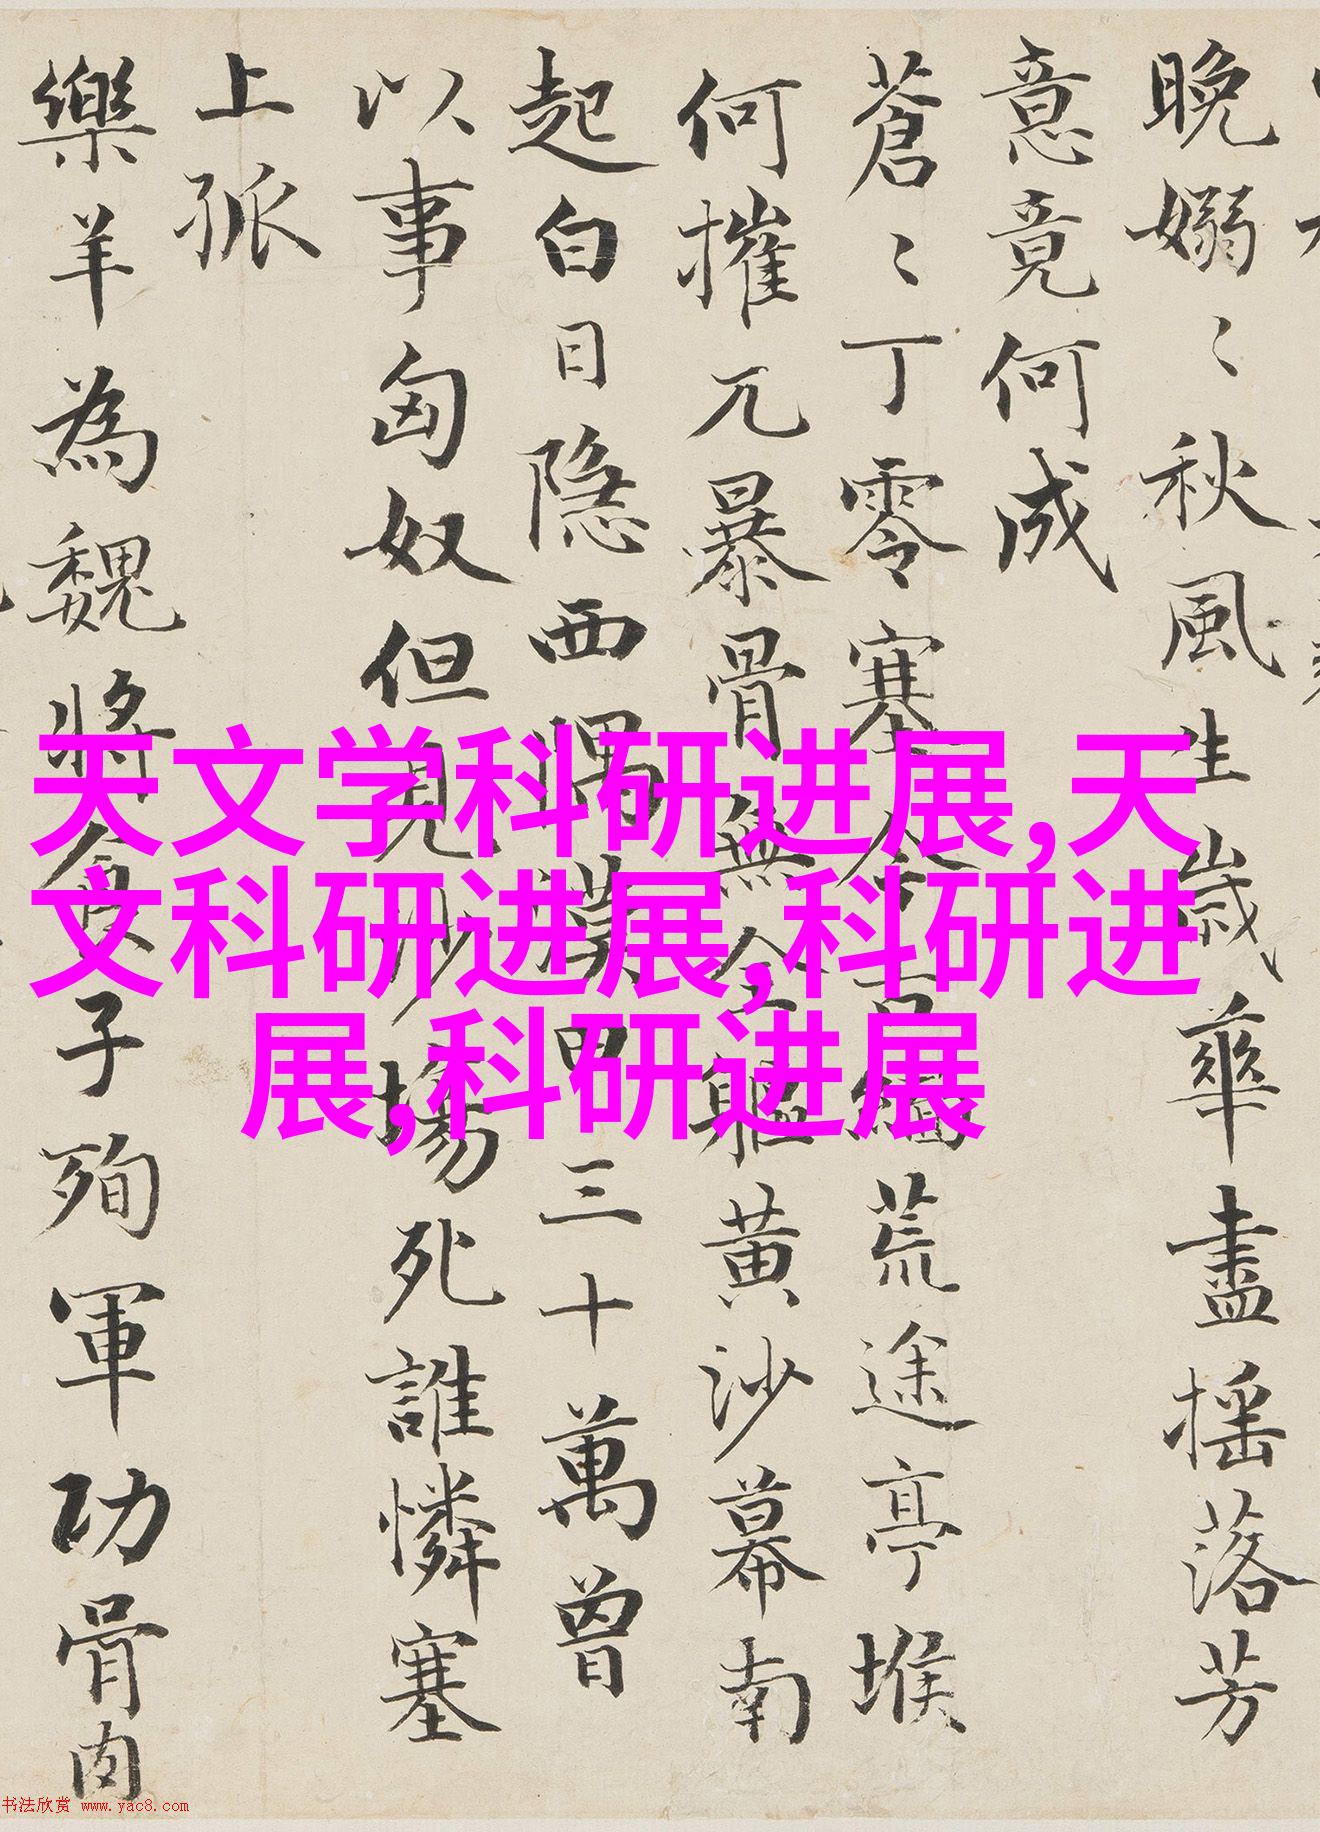 晚嫋〻秋風生歲華盡摇落芳
意竟何成
蒼〻丁零塞今古緬荒途亭堠
何摧兀暴骨無全軀黄沙幕南
起白日隐西隅漢甲三十萬曾
以事匈奴但見沙場死誰憐塞
上孤
樂羊為魏將食子殉軍功骨肉
天文学科研进展,天
文科研进展,科研进
展,科研进展
书法欣赏 www.yac8.com